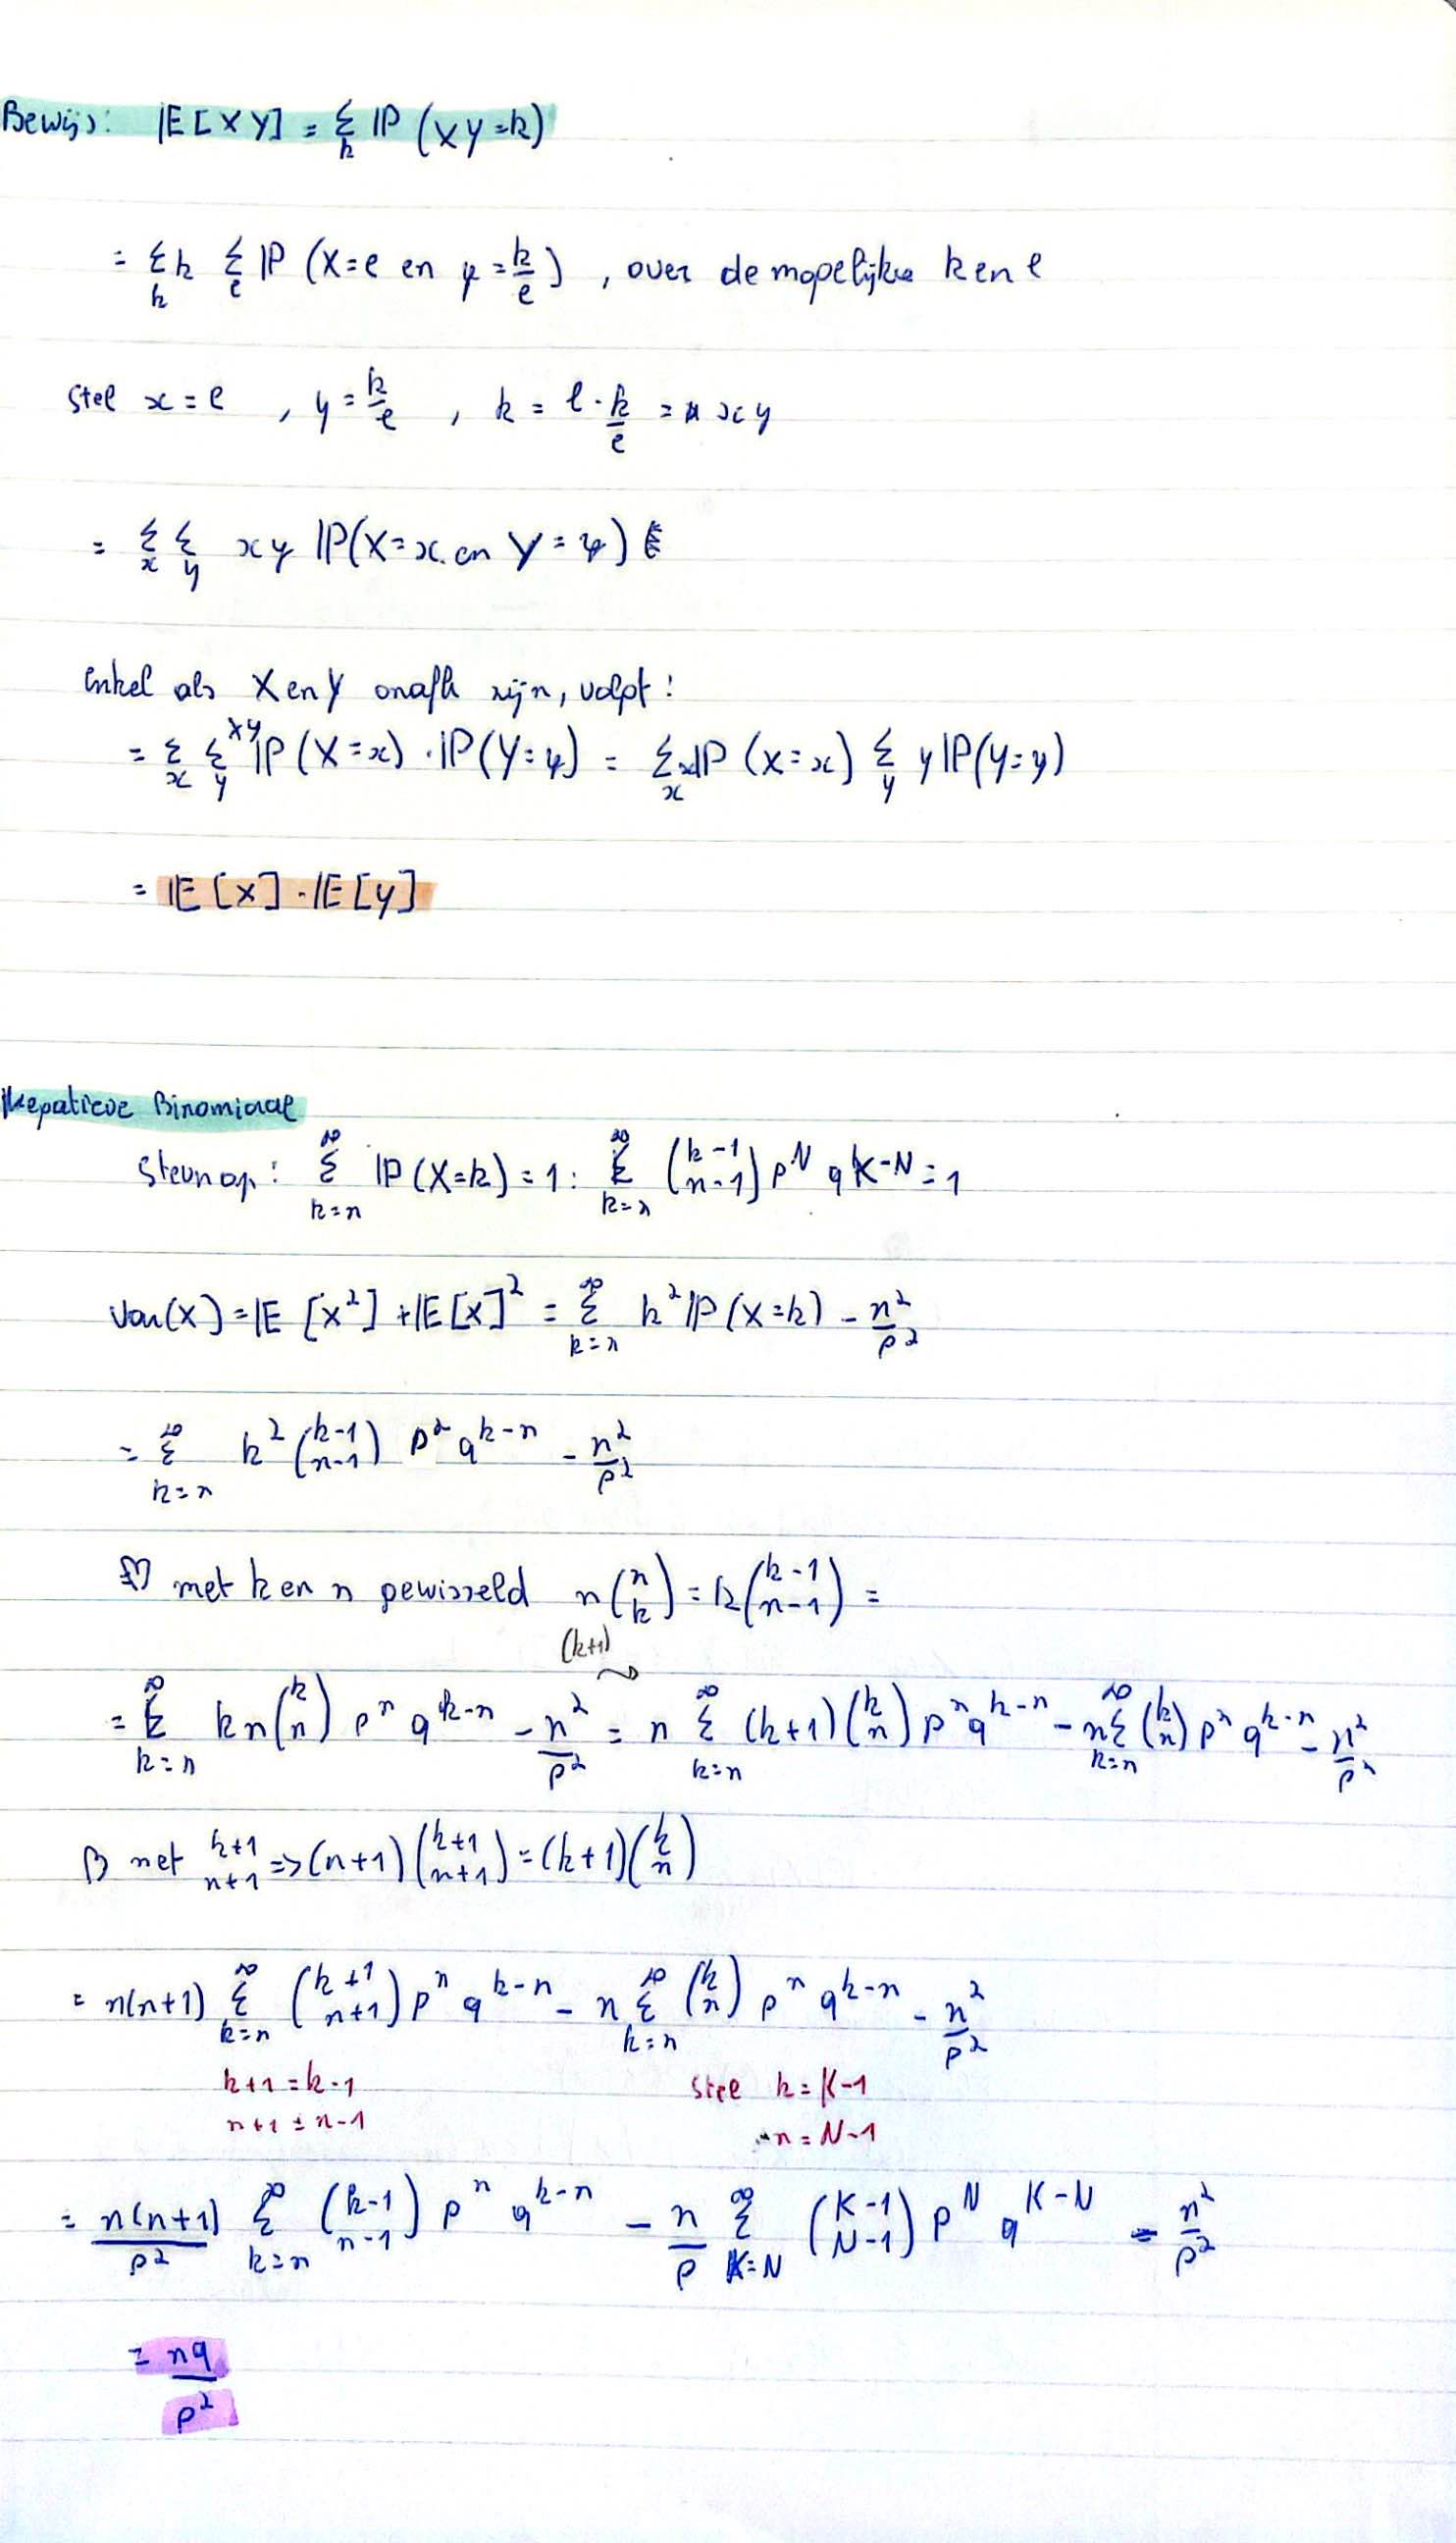 Bewijs: |E[XY] = Σ_k |P (XY=k)
= Σ_k k Σ_l |P (X=l en y = k/l) , over de mogelijke k en l
Stel x = l , y = k/l , k = l · k/l = xy
= Σ_x Σ_y xy |P(X=x en Y=y)
Enkel als X en Y onafh zijn, volgt:
= Σ_x Σ_y xy |P(X=x) · |P(Y=y) = Σ_x x|P (X=x) Σ_y y|P(Y=y)
= |E[X] · |E[Y]
Negatieve Binomiaal
Steun op: Σ_{k=n}^∞ |P(X=k) = 1 : Σ_{k=n}^∞ (k-1 n-1) p^N q^{K-N} = 1
Var(X) = |E[X²] + |E[X]² = Σ_{k=n}^∞ k² |P(X=k) - n²/p²
= Σ_{k=n}^∞ k² (k-1 n-1) p² q^{k-n} - n²/p²
met k en n gewisseld n(n k) = k(k-1 n-1) =
(k+1)
= Σ_{k=n}^∞ kn(k n) p^n q^{k-n} - n²/p² = n Σ_{k=n}^∞ (k+1)(k n) p^n q^{k-n} - n Σ_{k=n}^∞ (k n) p^n q^{k-n} - n²/p²
met k+1 n+1 => (n+1)(k+1 n+1) = (k+1)(k n)
= n(n+1) Σ_{k=n}^∞ (k+1 n+1) p^n q^{k-n} - n Σ_{k=n}^∞ (k n) p^n q^{k-n} - n²/p²
k+1 = k-1 stel k = K-1
n+1 = n-1 n = N-1
= n(n+1)/p² Σ_{k=n}^∞ (k-1 n-1) p^n q^{k-n} - n/p Σ_{K=N}^∞ (K-1 N-1) p^N q^{K-N} - n²/p²
= nq/p²